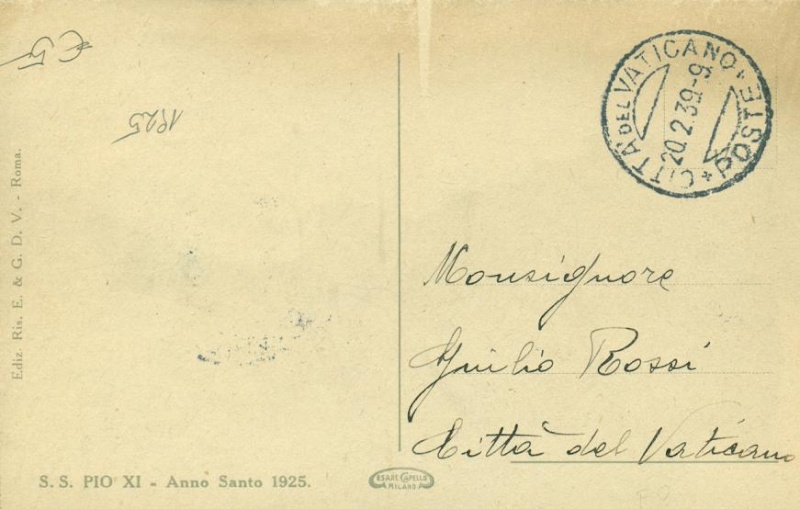 € 5
1925
Ediz. Ris. E. & G. D. V. - Roma.
CITTÀ DEL VATICANO POSTE
20.2.39.-9
Monsignore
Giulio Rossi
Città del Vaticano
S. S. PIO XI - Anno Santo 1925.
CESARE CAPELLO
MILANO